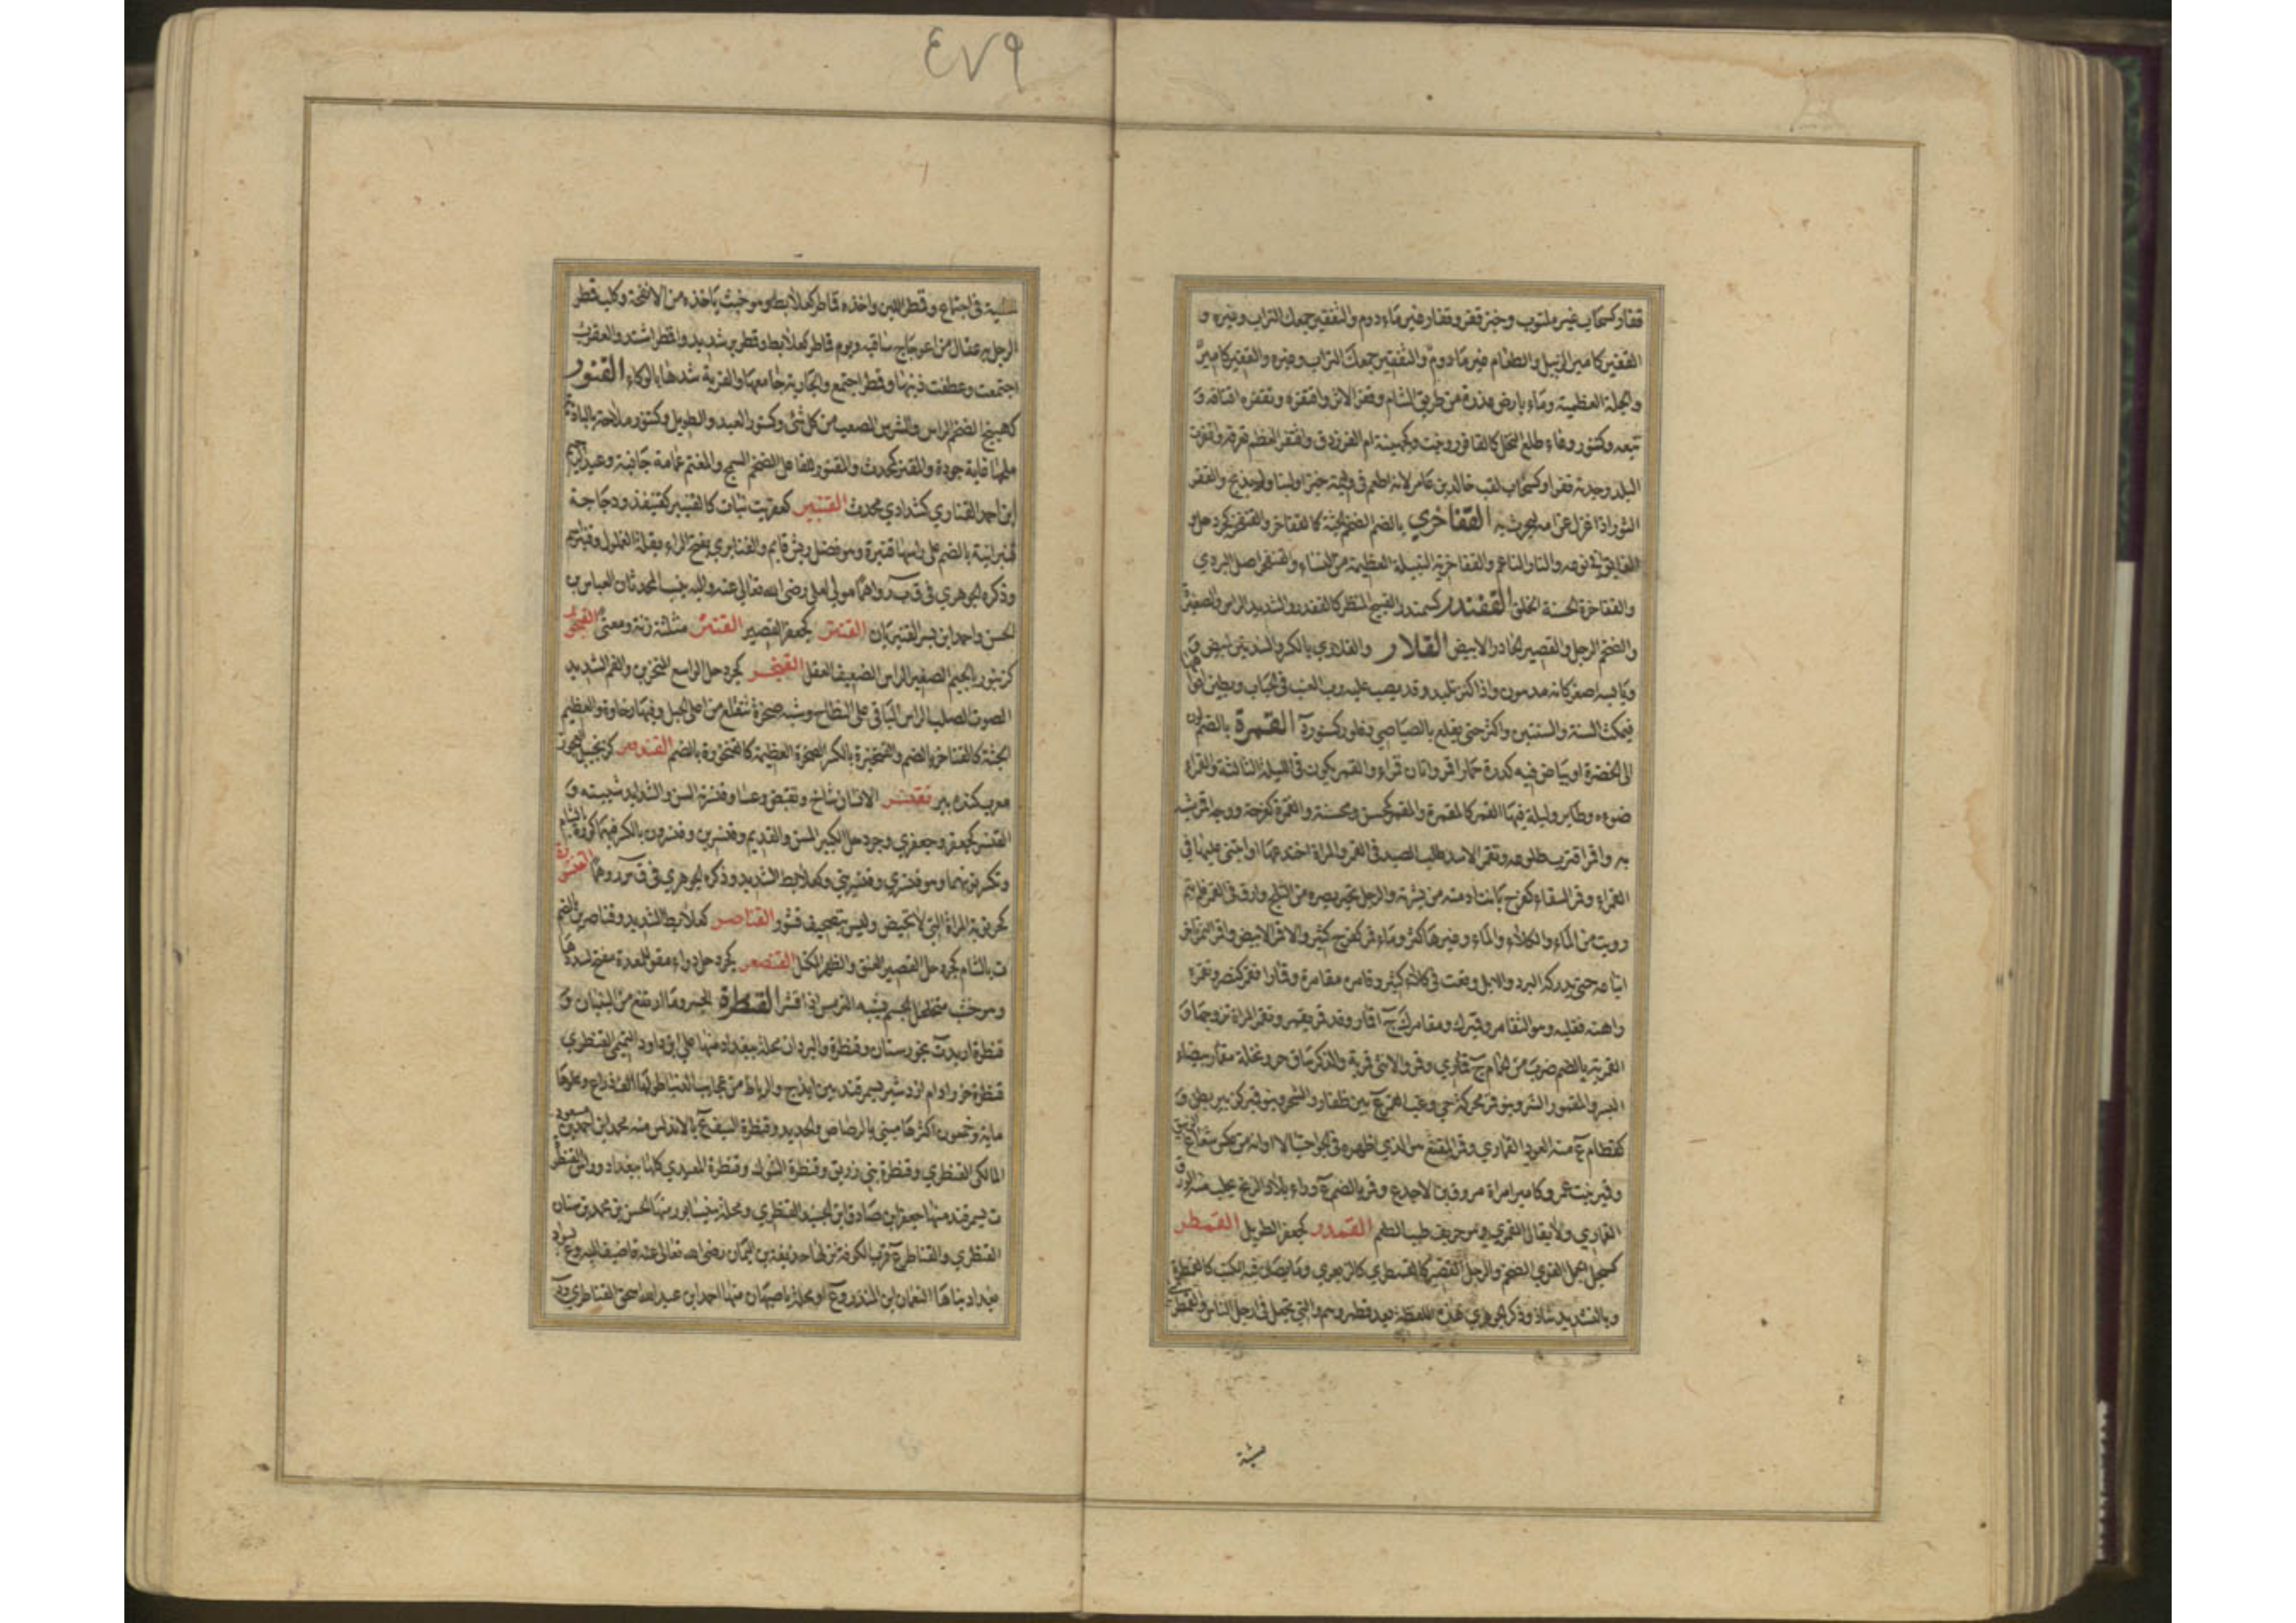 ٤٧٩
قفار كسحاب غير ملتوت وخبز قفر وقفار غير مادوم والتقفير جمعك التراب وغيره و
القفير كامير الزبيل والطعام غير مادوم والتقفير جمعك التراب وغيره والقفير كامير
والجلة العظيمة وماء بارض عذرة من طريق الشام وقفر الاثر واقتفره وتقفره اقتافه و
تتبعه وكتنور وعاء طلع النخل كالقافور ونبت وكجهينة ام الفرزدق واقتفر العظم تعرقه واقفرت
البلد وجدته قفرا وكسحاب لقب خالد بن عامر لانه اطعم في وليمة خبزا ولبنا ولم يذبح والقفر
الثور اذا عزل عن امه ليحرث به القفاخري بالضم الضخم الجثة كالقفاخر والقنفخر كجردحل و
الفايق في نوعه والتار الناعم والقفاخرية النبيلة العظيمة من النساء والقنفخر اصل البردي
والقفاخرة الحسنة الخلق القفندر كسمندر القبيح المنظر كالقفدر والشديد الراس والصغيره
والضخم الرجل والقصير الحادر الابيض القلار والقلاري بالكسر والشد تين ابيض
ويابسه اصفر كانه مدهون واذا كثر تلبد وقد يصب عليه رب العنب في الحباب ويطين افواهها
فيمكث السنة والسنتين واكثر حتى يقلع بالصياصي وقلور كسنورة القمرة بالضم لون
الى الخضرة او بياض فيه كدرة حمار اقمر واتان قمراء والقمر يكون في الليلة الثالثة والقمراء
ضوءه وطاير وليلة فيها القمر كالمقمرة والمقمر كمحسن ومحسنة والقمرة كفرحة ووجه اقمر شبه
به واقمر اقترب طلوعه وتقمر الاسد طلب الصيد في القمر والمراة اختدعها او ابتنى عليها في
القمراء وقمر السقاء كفرح بانت ادمته من بشرته والرجل تحير بصره من الثلج وارق في القمر فلم ينم
ورويت من الماء والكلاء والماء وغيرها كثر وماء قمر كفرح كثير والاقمر الابيض واقمر الثمر تاخر
ايناعه حتى يدركه البرد والابل وقعت في كلاء كثير وقامره مقامرة وقمارا فقمره كنصره وتقمره
راهنه فغلبه وهو التقامر وقميرك ومقامرك ج اقمار وقد قمر يقمر وتقمر المراة تزوجها و
القمرية بالضم ضرب من الحمام ج قماري وقمر والانثى قمرية والذكر ساق حر ونخلة مقمار بيضاء
البسر والمقمور الشر وبنو قمر محركة حي وغب القمر ع بين ظفار والشحر وبنو قمير كزبير بطن و
كقطام ع منه العود القماري وقمر المقنع هو الذي اظهره في الجو احتيالا او انه من عكس شعاع
وقمير بنت عمرو كامير امراة مسروق بن الاجدع وقمر بالضم ع وراء بلاد الزنج يجلب منه الورق
القماري ولا يقال القمري وهو حريف طيب الطعم القمدر كجعفر الطويل القمطر
كسجل الجمل القوي الضخم والرجل القصير كالقمطري كالزبعري وما يصان فيه الكتب كالقمطرة
وبالتشديد شاذ وذكر الجوهري هذه اللفظة بعد قطر وهم والتي تجعل في ارجل الناس والقمطرى
مشية
مشية في اجتماع وقمطر اللبن واخذه قماطر كعلابط وهو خبث ياخذه من الانفحة وكلب قمطر
الرجل به عقال من اعوجاج ساقيه ويوم قماطر كعلابط وقمطرير شديد واقمطر اشتد والعقرب
اجتمعت وعطفت ذنبها وقمطر اجتمع والجارية جامعها والقربة شدها بالوكاء القنور
كهبيخ الضخم الراس والشرس الصعب من كل شئ وكسنور العبد والطويل وكتنور ملاحة بالبادية
ملحها غاية جودة والمقنر كمحدث والمقنور للفاعل الضخم السمج والمعتم عمامة جافية وعبد
ابن احمد القناري كشدادي محدث القنبير كعفريت نبات كالقنيبير كقنيفذ ودجاجة
قنبرانية بالضم على راسها قنبرة وهو فضل ريش قايم والقنابري بفتح الراء بقلة الغملول وقنبر
وذكره الجوهري في ق ب ر واهما مولى لعلي رضى الله تعالى عنه واليه ينسب المحدثان العباس بن
الحسن واحمد ابن بشر القنبريان القنتر كجعفر القصير القنثر مثلثة زنة ومعنى القنجور
كزنبور بالجيم الصغير الراس الضعيف العقل القنخر كجردحل الواسع المنخرين والفم الشديد
الصوت الصلب الراس الباقي على النطاح وشبه صخرة تنقلع من اعلى الجبل وفيها رخاوة والعظيم
الجثة كالقناخر بالضم والقنخيرة بالكسر الصخرة العظيمة كالقنخورة بالضم القندوير كزنجبيل العجوز
معرب كنده پير تقنسر الانسان شاخ وتقبض وعسا وقنسرته السن والشدايد شيبته و
القنسر كجعفر وجعفري وجردحل الكبير المسن والقديم وقنسرين وقنسرون بالكسر فيهما كورة بالشام
وتكسر نونهما وهو قنسري وقنسريني وكعلابط الشديد وذكره الجوهري في ق س ر وهما القنشورة
كخرنوبة المراة التي لا تحيض وليس بتصحيف قشور القناصر كعلابط الشديد وقناصرين بالضم
ع بالشام كجردحل القصير العنق والظهر المكتل القنصعر كجردحل دواء مقو للمعدة مفتح لسددها
وهو خشب متخلخل الجسم يشبه الترمس اذا قشر القنطرة الجسر وما ارتفع من البنيان و
قنطرة اربدت بخورستان وقنطرة والبردان محلة ببغداد منها علي ابن داود التميمي القنطري
قنطرة خرزاد ام ازدشير بسمرقند بين ايذج والرباط من عجايب الدنيا طولها الف ذراع وعلوها
ماية وخمسون اكثرها مبني بالرصاص والحديد وقنطرة السيف ع بالاندلس منه محمد ابن احمد بن مسعود
المالكي القنطري وقنطرة بني زريق وقنطرة الشوك وقنطرة المعبدي كلها ببغداد وراس القنطرة
ت بسمرقند منها جعفر ابن صادق ابن الجنيد القنطري ومحلة بنيسابور منها الحسن بن محمد بن سنان
القنطري والقناطر ع قرب الكوفة نزلها حذيفة بن اليمان رضى الله تعالى عنه فاضيف اليه وع بسواد
بغداد بناها النعمان ابن المنذر وع او محلة باصبهان منها احمد ابن عبد الله اسحق القناطري و